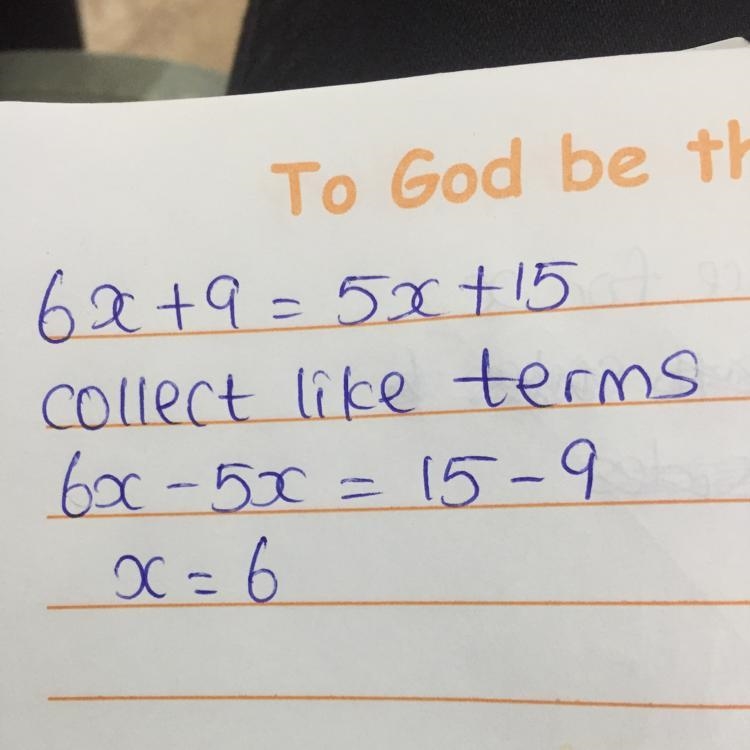 To God be th
6x + 9 = 5x + 15
collect like terms
6x - 5x = 15 - 9
x = 6